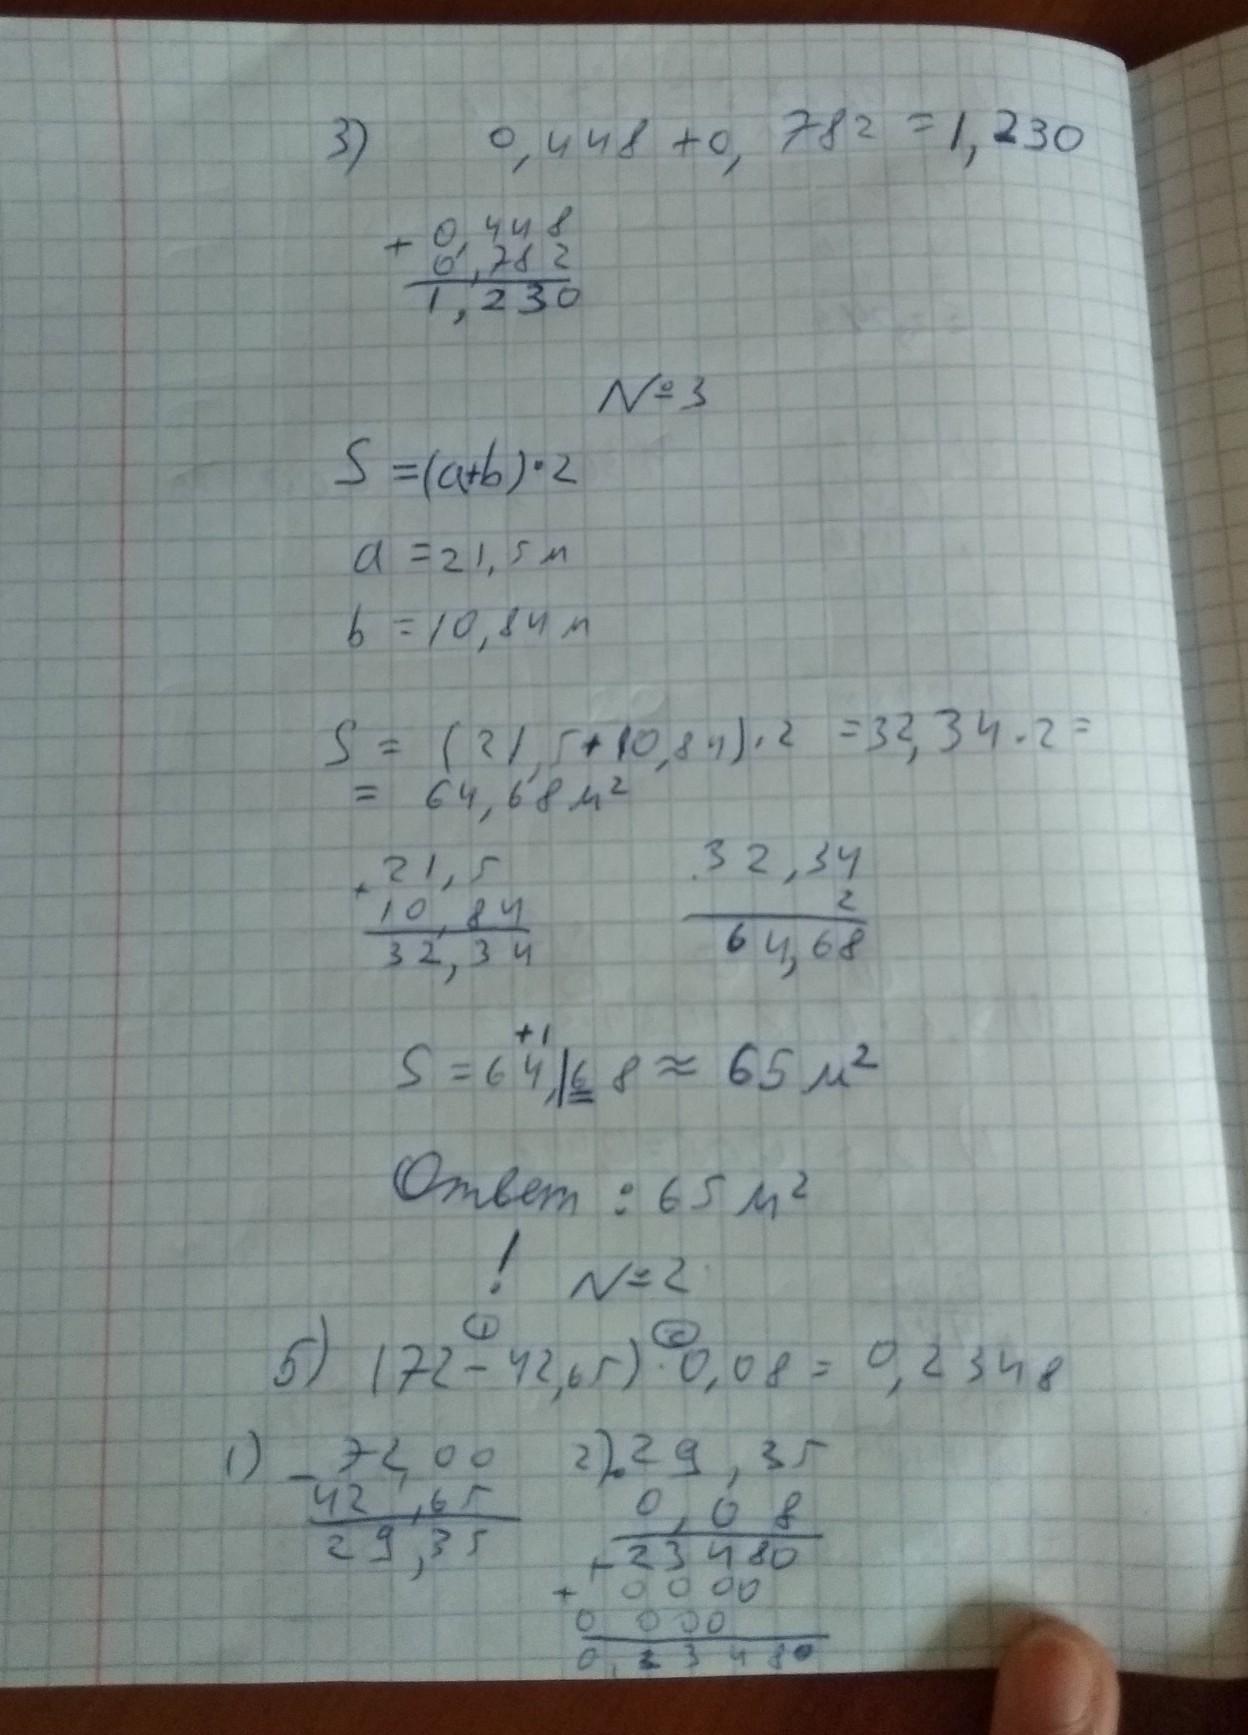 3) 0,448 + 0,782 = 1,230
+ 0,448
0,782
1,230
№3
S = (a+b)·2
a = 21,5 м
b = 10,84 м
S = (21,5+10,84)·2 = 32,34·2 =
= 64,68 м²
+ 21,5
10,84
32,34
· 32,34
2
64,68
+1
S = 64,|68 ≈ 65 м²
Ответ : 65 м²
! №2
1 2
5) (72 - 42,65)·0,08 = 0,2348
1) - 72,00
42,65
29,35
2) · 29,35
0,08
+ 23480
+ 0000
0 000
0,23480